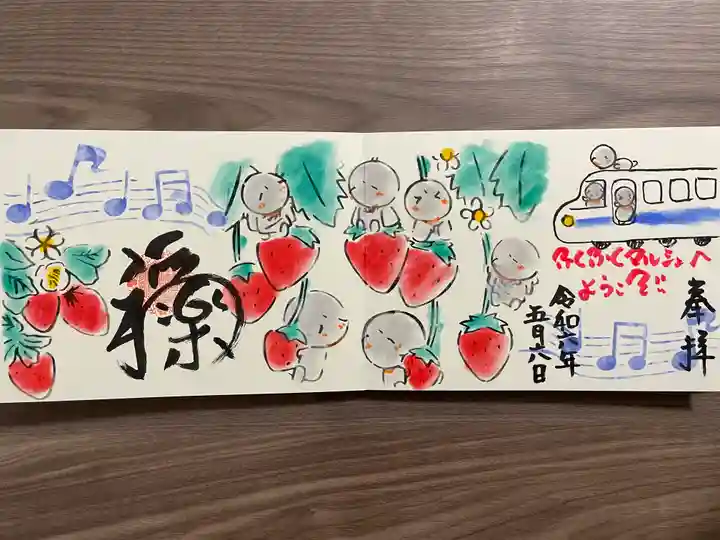 奉拝
ふくふくマルシェへ
ようこそ!!
令和六年
五月六日